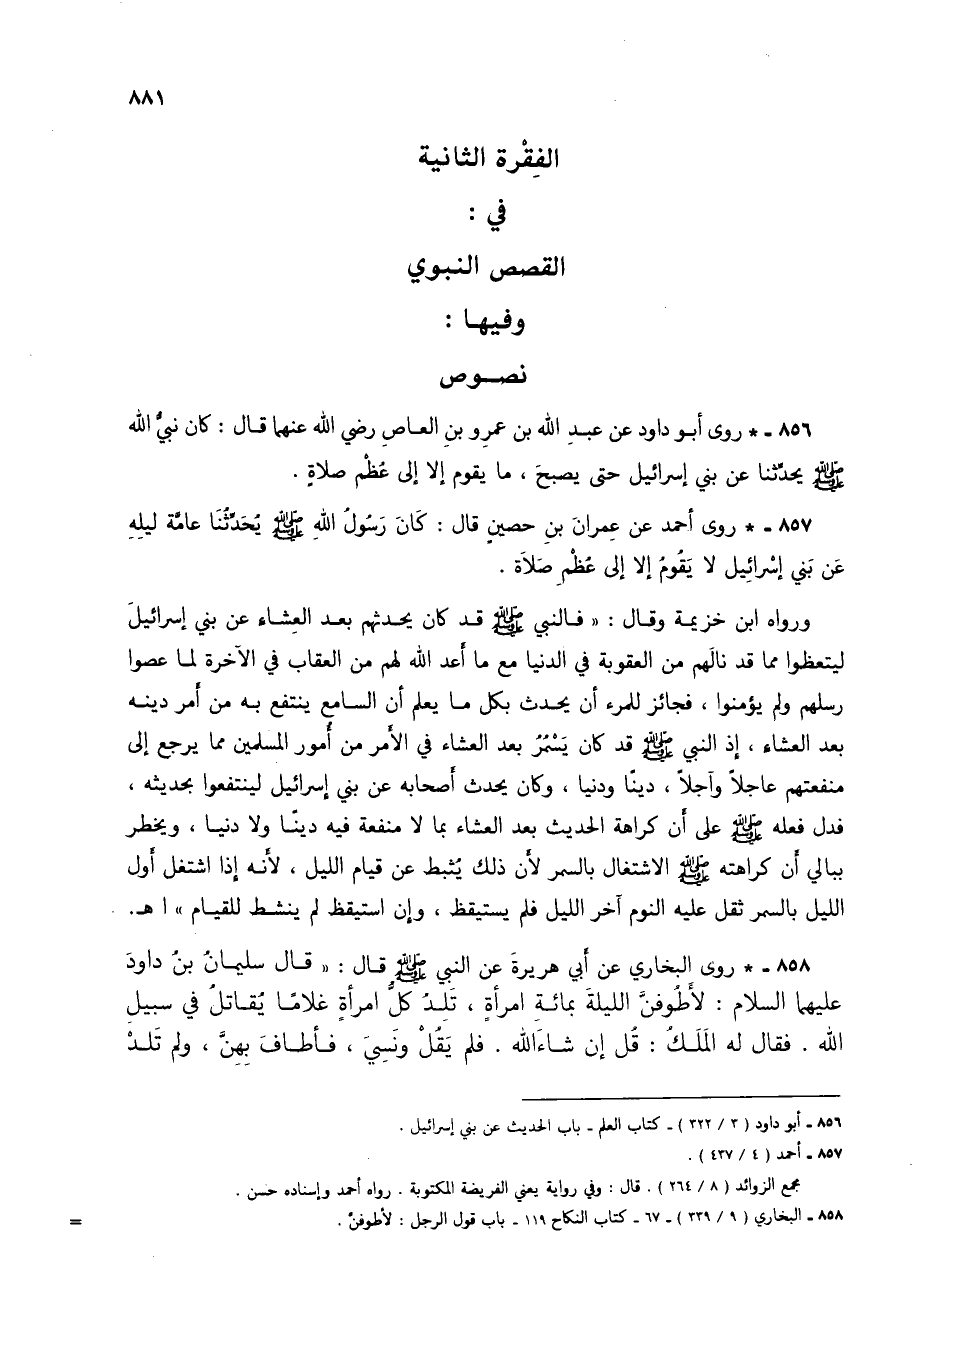 ٨٨١
الفِقْرة الثانية
في :
القصص النبوي
وفيها :
نصوص
٨٥٦ - * روى أبو داود عن عبدِ الله بن عمرِو بنِ العاصِ رضي الله عنهما قال : كان نبيُّ الله
ﷺ يحدّثنا عن بني إسرائيل حتى يصبحَ ، ما يقوم إلا إلى عُظْم صلاةٍ .
٨٥٧ - * روى أحمد عن عِمرانَ بنِ حصينٍ قال : كَانَ رَسُولُ اللهِ ﷺ يُحَدّثُنَا عامَّة ليلِهِ
عَن بَني إسْرائِيل لا يَقُومُ إلا إلى عُظْمِ صَلاَة .
ورواه ابن خزيمة وقال : « فالنبي ﷺ قد كان يحدثهم بعد العِشاء عن بني إسرائيلَ
ليتعظوا مما قد نالَهم من العقوبة في الدنيا مع ما أَعد الله لهم من العقاب في الآخرة لما عصوا
رسلهم ولم يؤمنوا ، فجائز للمرء أن يحدث بكل ما يعلم أن السامع ينتفع به من أَمر دينه
بعد العشاء ، إذ النبي ﷺ قد كان يَسْمُرُ بعد العشاء في الأَمر من أُمور المسلمين مما يرجع إلى
منفعتهم عاجلاً وآجلاً ، دينًا ودنيا ، وكان يحدث أَصحابه عن بني إسرائيل لينتفعوا بحديثه ،
فدل فعله ﷺ على أَن كراهة الحديث بعد العشاء بما لا منفعة فيه دينًا ولا دنيا ، ويخطر
ببالي أَن كراهته ﷺ الاشتغال بالسمر لأَن ذلك يُثبط عن قيام الليل ، لأَنه إذا اشتغل أَول
الليل بالسمر ثقل عليه النوم آخر الليل فلم يستيقظ ، وإن استيقظ لم ينشط للقيام » ا هـ.
٨٥٨ - * روى البخاري عن أَبي هريرةَ عن النبي ﷺ قال : « قال سليمانُ بنُ داودَ
عليهما السلام : لأَطُوفنَّ الليلةَ بمائةِ امرأةٍ ، تَلِدُ كلُّ امرأةٍ غلامًا يُقاتلُ في سبيل
الله . فقال له المَلَكُ : قُل إن شاءَالله . فلم يَقُلْ ونَسِيَ ، فأطافَ بِهِنَّ ، ولم تَلِدْ
٨٥٦ - أبو داود ( ٣ / ٣٢٢ ) - كتاب العلم - باب الحديث عن بني إسرائيل .
٨٥٧ - أحمد ( ٤ / ٤٣٧ ) .
مجمع الزوائد ( ٨ / ٢٦٤ ) . قال : وفي رواية يعني الفريضة المكتوبة . رواه أحمد وإسناده حسن .
٨٥٨ - البخاري ( ٩ / ٣٣٩ ) - ٦٧ - كتاب النكاح ١١٩ - باب قول الرجل : لأطوفنّ .
=